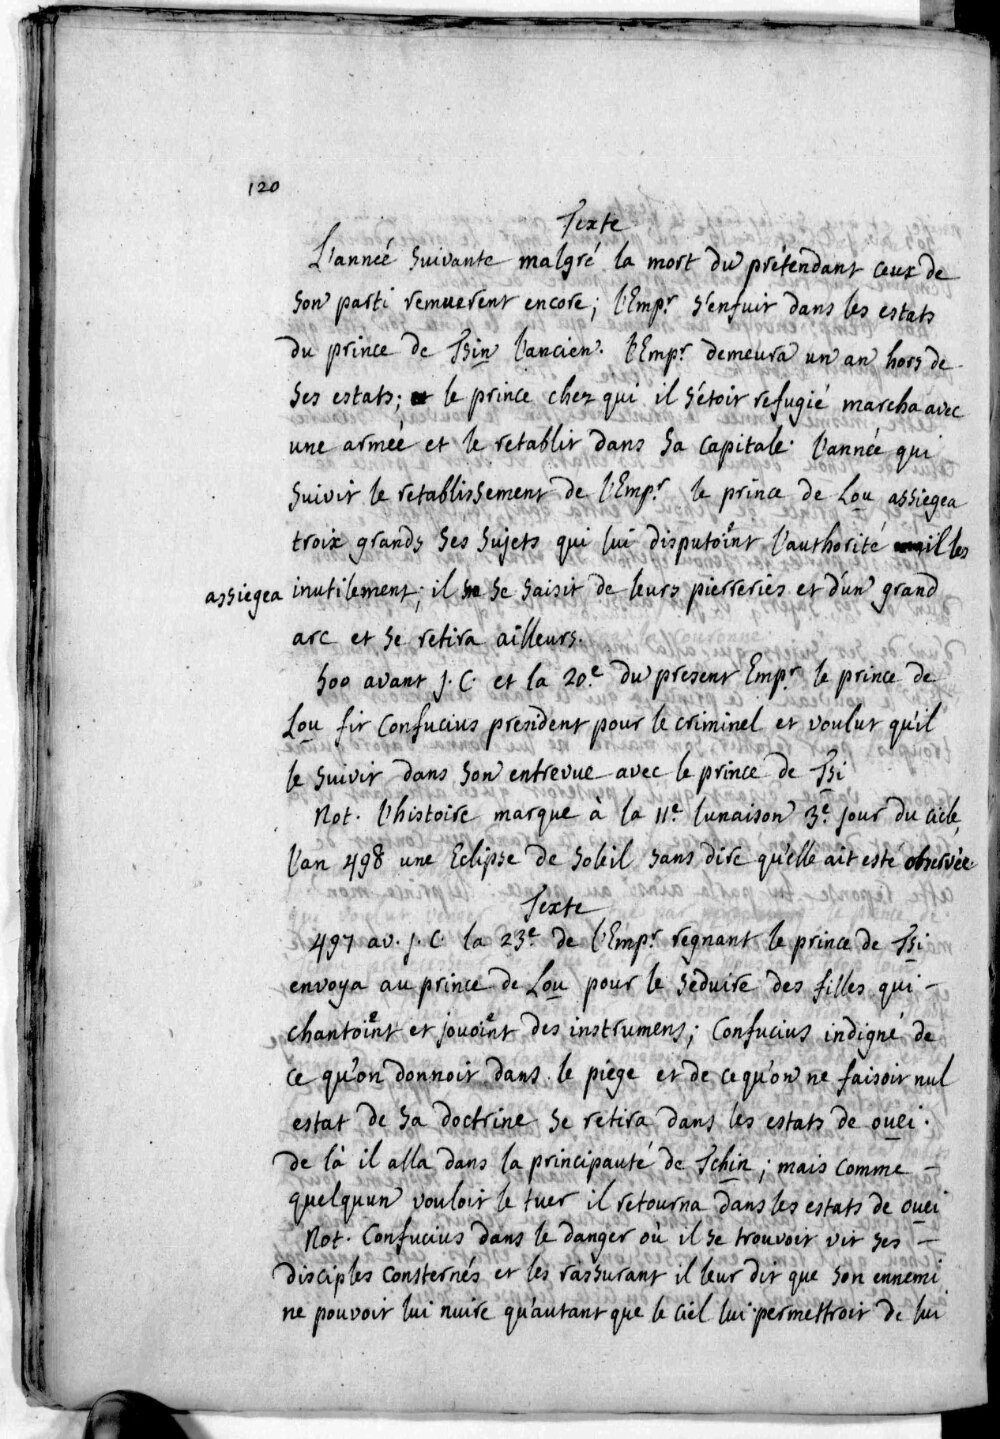 120
Texte
L'année suivante malgré la mort du prétendant ceux de
son parti remuerent encore; l'Empr. s'enfuit dans les estats
du prince de Tsin l'ancien. l'Empr. demeura un an hors de
ses estats; le prince chez qui il s'étoit refugié marcha avec
une armée et le retablit dans sa capitale. l'année qui
suivit le retablissement de l'Empr. le prince de Lou assiegea
troix grands ses sujets qui lui disputoient l'authorité il les
assiegea inutilement; il se saisit de leurs pierreries et d'un grand
arc et se retira ailleurs.
500 avant J. C. et la 20.e du present Empr. le prince de
Lou fit Confucius president pour le criminel et voulut qu'il
le suivit dans son entrevue avec le prince de Tsi
Not. l'histoire marque à la 11.e lunaison 3.e jour du cicle,
l'an 498 une Eclipse de soleil sans dire qu'elle ait esté observée.
Texte
497 av. J. C. la 23.e de l'Empr. regnant le prince de Tsi
envoya au prince de Lou pour le séduire des filles qui –
chantoient et jouoient des instrumens; Confucius indigné de
ce qu'on donnoit dans le piége et de ce qu'on ne faisoit nul
estat de sa doctrine se retira dans les estats de ouei.
de là il alla dans la principauté de Tchin; mais comme –
quelqu'un vouloit le tuer il retourna dans les estats de ouei
Not. Confucius dans le danger où il se trouvoit vit ses –
disciples consternés et les rassurant il leur dit que son ennemi
ne pouvoit lui nuire qu'autant que le ciel lui permettroit de lui